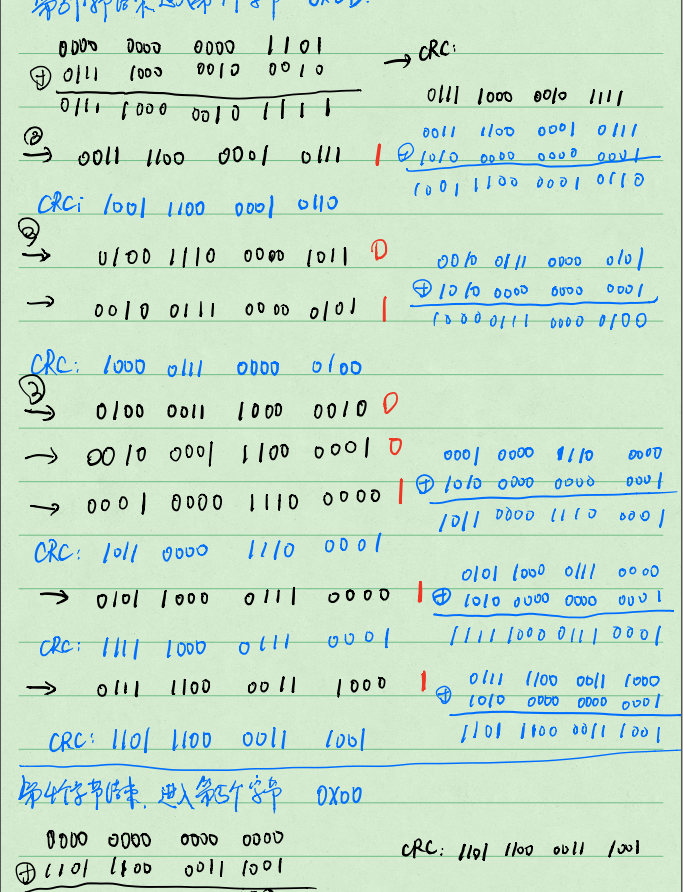 0000 0000 0000 1101 → CRC:
⊕ 0111 1000 0010 0010
0111 1000 0010 1111
0111 1000 0010 1111
② → 0011 1100 0001 0111 1
0011 1100 0001 0111
⊕ 1010 0000 0000 0001
1001 1100 0001 0110
CRC: 1001 1100 0001 0110
→ 0100 1110 0000 1011 0
→ 0010 0111 0000 0101 1
0010 0111 0000 0101
⊕ 1010 0000 0000 0001
1000 0111 0000 0100
CRC: 1000 0111 0000 0100
③ → 0100 0011 1000 0010 0
→ 0010 0001 1100 0001 0
→ 0001 0000 1110 0000 1
0001 0000 1110 0000
⊕ 1010 0000 0000 0001
1011 0000 1110 0001
CRC: 1011 0000 1110 0001
→ 0101 1000 0111 0000 1
0101 1000 0111 0000
⊕ 1010 0000 0000 0001
1111 1000 0111 0001
CRC: 1111 1000 0111 0001
→ 0111 1100 0011 1000 1
0111 1100 0011 1000
⊕ 1010 0000 0000 0001
1101 1100 0011 1001
CRC: 1101 1100 0011 1001
第4个字节结束，进入第5个字节 0X00
0000 0000 0000 0000
⊕ 1101 1100 0011 1001
CRC: 1101 1100 0011 1001